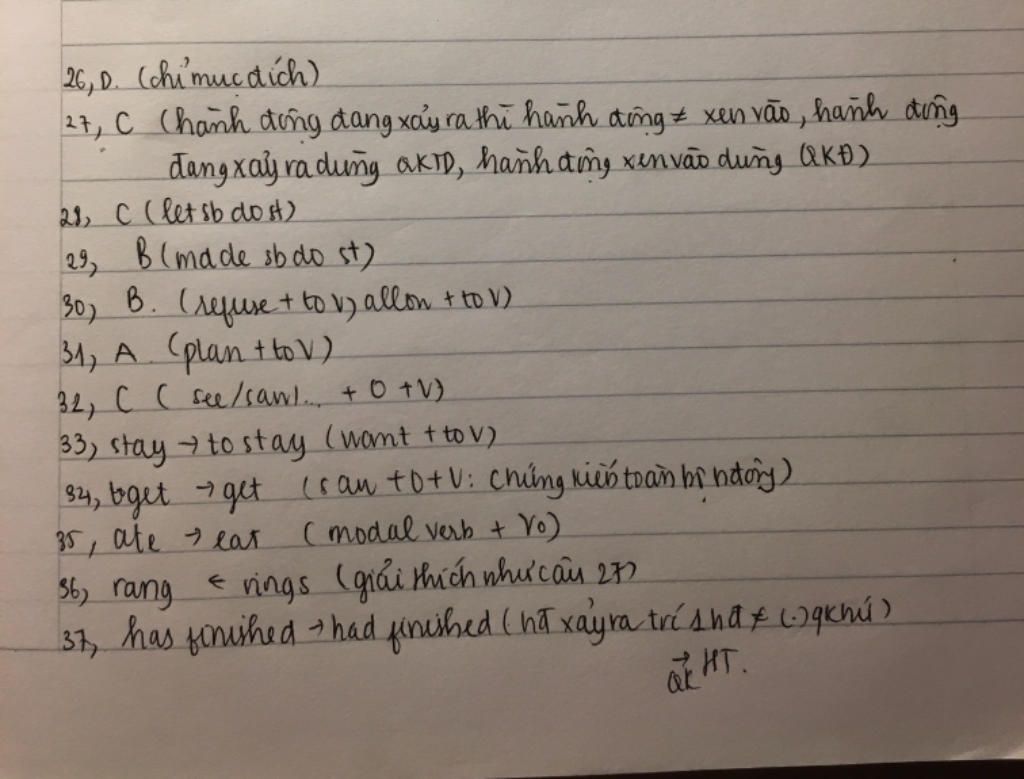 26, D. (chỉ mục đích)
27, C (hành động đang xảy ra thì hành động ≠ xen vào, hành động
đang xảy ra dùng QKTD, hành động xen vào dùng QKĐ)
28, C (let sb do st)
29, B (made sb do st)
30, B. (refuse + to V, allow + to V)
31, A. (plan + to V)
32, C ( see/saw/... + O + V)
33, stay → to stay (want + to V)
34, to get → get (saw + O + V: chứng kiến toàn bộ hđộng)
35, ate → eat (modal verb + Vo)
36, rang ← rings (giải thích như câu 27)
37, has finished → had finished (hđ xảy ra trc 1 hđ ≠ (.) qkhứ)
→ QK HT.